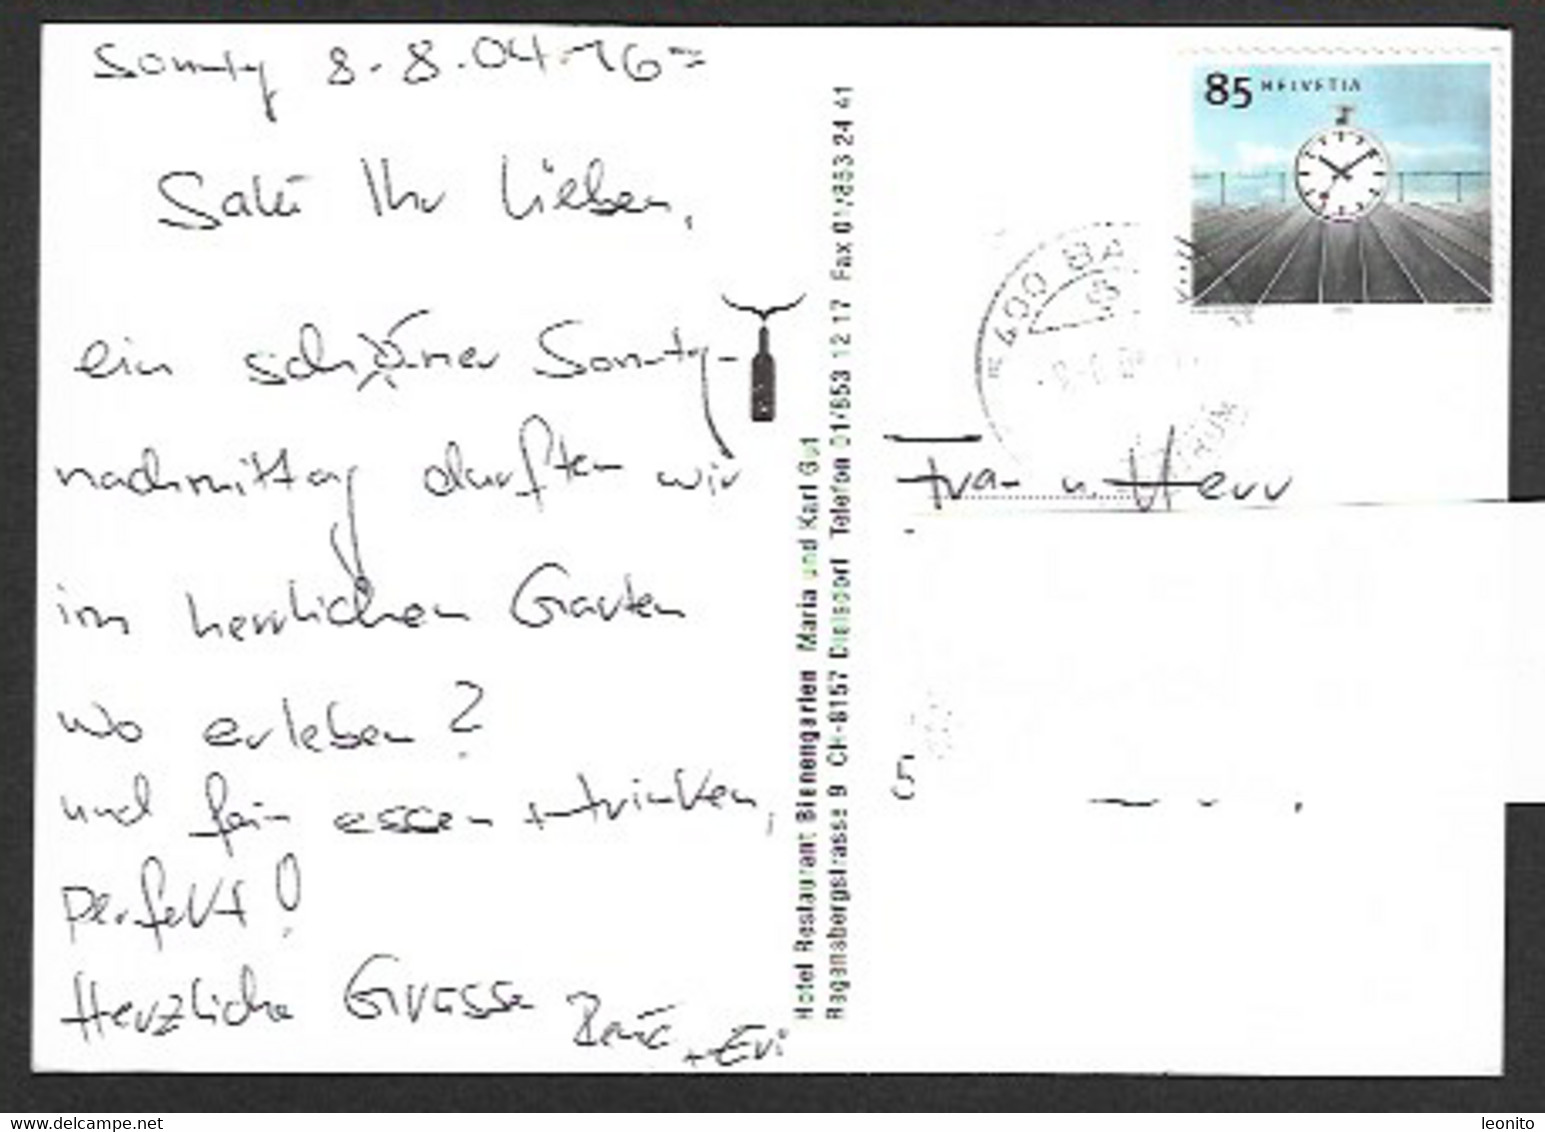 Sonntg 8.8.04 16=
Salü Ihr Lieben,
ein schöner Sonntg-
nachmittag durften wir
im herrlichen Garten
wo erleben?
und fein essen + trinken,
perfekt!
Herzliche Grüsse
René + Evi
Hotel Restaurant Bienengarten Maria und Karl Gut
Regensbergstrasse 9 CH-8157 Dielsdorf Telefon 01/853 12 17 Fax 01/853 24 41
85 HELVETIA
5400 BA
Frau u. Herr
5
leonito